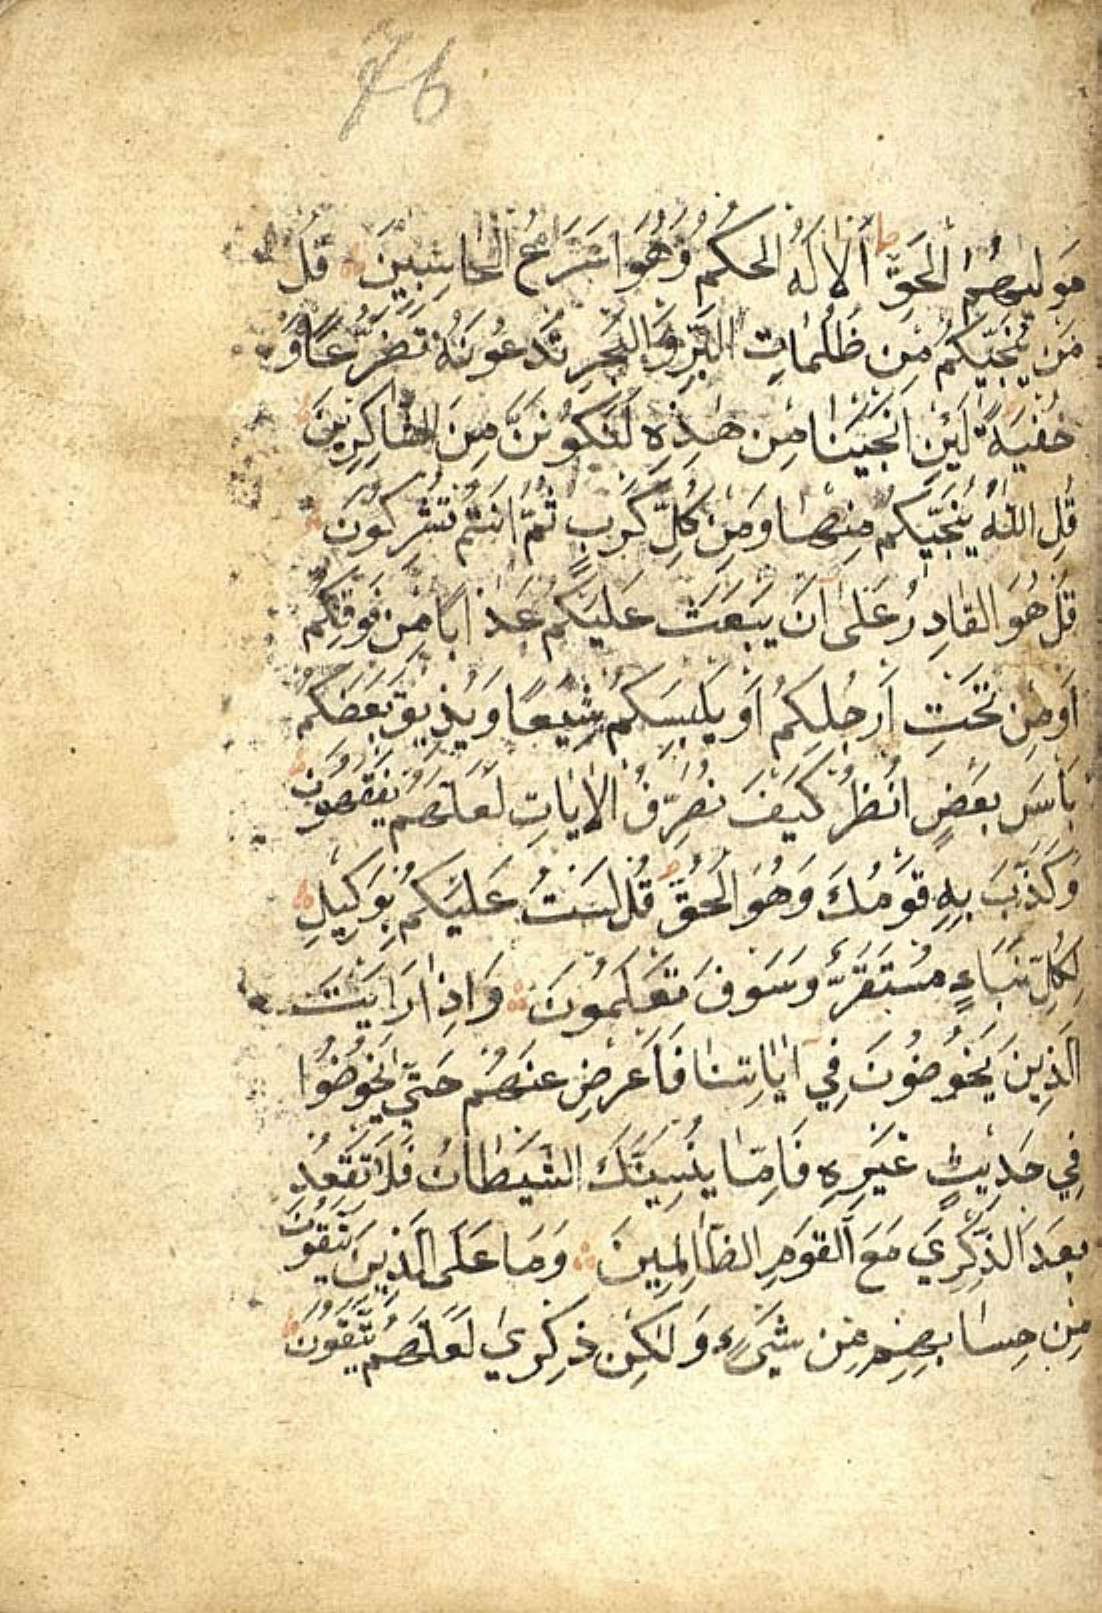 76
مَوليٰهُمُ الْحَقِّ ط اَلَا لَهُ الحكمُ وَهُوَ اَسْرَعُ الْحَاسِبِينَ قُلْ
مَنْ يُنَجِّيكُمْ مِن ظُلُمَاتِ الْبَرِّ وَالْبَحْرِ تَدْعُونَهُ تَضَرُّعًا وَ
خُفْيَةً لَئِنْ اَنْجَيْنَا مِنْ هٰذِهِ لَنَكُونَنَّ مِنَ الشَّاكِرِينَ
قُلِ اللّٰهُ يُنَجِّيكُمْ مِنْهَا وَمِنْ كُلِّ كَرْبٍ ثُمَّ اَنْتُمْ تُشْرِكُونَ
قُلْ هُوَ القَادِرُ عَلٰى اَنْ يَبْعَثَ عَلَيْكُمْ عَذَابًا مِنْ فَوْقِكُمْ
اَوْ مِنْ تَحْتِ اَرْجُلِكُمْ اَوْ يَلْبِسَكُمْ شِيَعًا وَيُذِيقَ بَعْضَكُمْ
بَأْسَ بَعْضٍ اُنْظُرْ كَيْفَ نُصَرِّفُ الْاٰيَاتِ لَعَلَّهُمْ يَفْقَهُونَ
وَكَذَّبَ بِهِ قَوْمُكَ وَهُوَ الْحَقُّ قُلْ لَسْتُ عَلَيْكُمْ بِوَكِيلٍ
لِكُلِّ نَبَاءٍ مُسْتَقَرٌّ وَسَوْفَ تَعْلَمُونَ وَاِذَا رَاَيْتَ
الَّذِينَ يَخُوضُونَ فِي اٰيَاتِنَا فَاَعْرِضْ عَنْهُمْ حَتّٰى يَخُوضُوا
فِي حَدِيثٍ غَيْرِهِ فَاِمَّا يُنْسِيَنَّكَ الشَّيْطَانُ فَلَا تَقْعُدْ
بَعْدَ الذِّكْرٰي مَعَ الْقَوْمِ الظَّالِمِينَ وَمَا عَلَى الَّذِينَ يَتَّقُونَ
مِنْ حِسَابِهِمْ مِنْ شَيْءٍ وَلٰكِنْ ذِكْرٰي لَعَلَّهُمْ يَتَّقُونَ